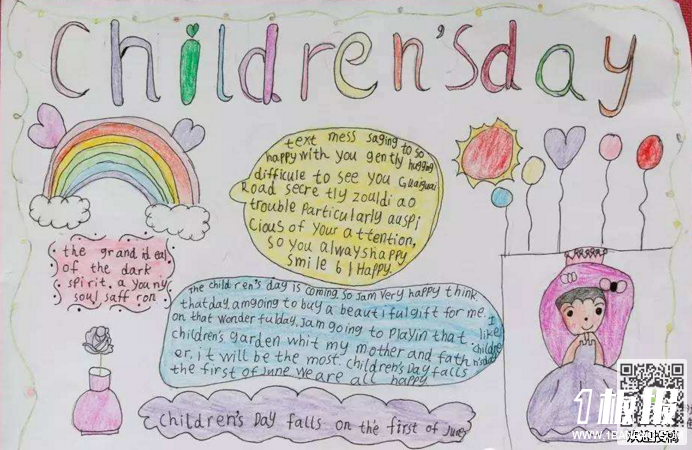 Children'sday
text mess saging to so
happy with you gently hugging
difficule to see you Guaiguai
Road secre tly zouldi ao
trouble Particularly auspi
cious of your attention,
so you always happy
smile 61 Happy.
the grand id eal
of the dark
spirit. a young
soul saff ron
the child ren's day is coming. so Jam very happy think.
that day, am going to buy a beautiful gift for me. I
on that wonder ful day. Jam going to Play in that like
children's garden whit my mother and fath childre
er. it will be the most. children's Day falls n'sday
the first of June we are all happy
children's Day falls on the first of June.
1板报